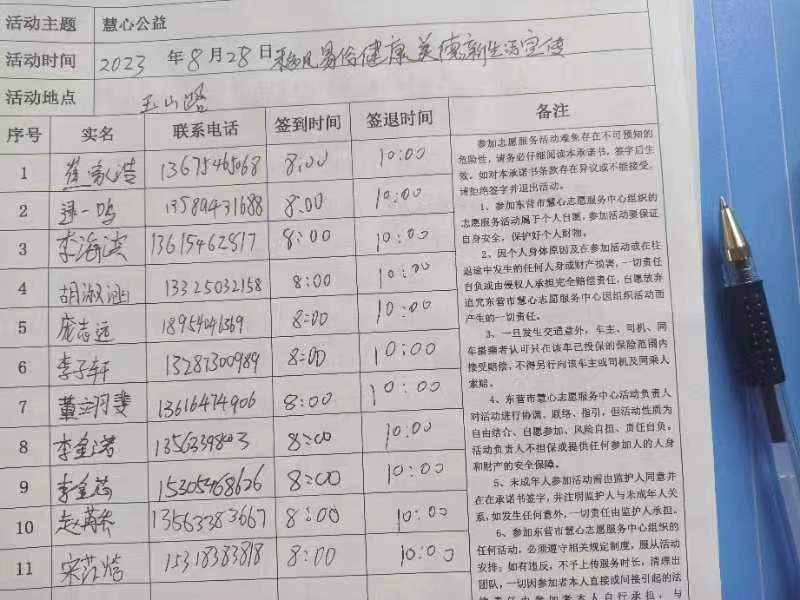 活动主题 慧心公益
活动时间 2023 年 8 月 28 日 移风易俗健康 美德新生活宣传
活动地点 玉山路
序号 实名 联系电话 签到时间 签退时间 备注
1 崔家浩 13675465068 8:00 10:00
2 逯一鸣 13589431688 8:00 10:00
3 李海滨 13615462817 8:00 10:00
4 胡淑涵 13325032158 8:00 10:00
5 庞志远 18954046369 8:00 10:00
6 李子轩 13287300989 8:00 10:00
7 董翊斐 13616474906 8:00 10:00
8 李金诺 8:00 10:00
9 李金 15305468626 8:00 10:00
10 赵 13563383667 8:00 10:00
11 宋 15318383818 8:00 10:00
参加志愿服务活动难免存在不可预知的
危险性，请务必仔细阅读本承诺书，签字后生
效。如对本承诺书条款存在异议或不能接受，
请拒绝签字并退出活动。
1、参加东营市慧心志愿服务中心组织的
志愿服务活动属于个人自愿，参加活动要保证
自身安全，保护好个人财物。
2、因个人身体原因及在参加活动或在往
返途中发生的任何人身或财产损害，一切责任
自负或由侵权人承担完全赔偿责任，自愿放弃
追究东营市慧心志愿服务中心因组织活动而
产生的一切责任。
3、一旦发生交通意外，车主、司机、同
车搭乘者认可只在该车已投保的保险范围内
接受赔偿，不得另行向该车主或司机及同乘人
索赔。
4、东营市慧心志愿服务中心活动负责人
对活动进行协调、联络、指引，但活动性质为
自由结合、自愿参加、风险自担、责任自负。
活动负责人不担保或提供任何参加人的人身
和财产的安全保障。
5、未成年人参加活动需由监护人同意并
在在承诺书签字，并注明监护人与未成年人关
系，如发生任何意外，一切责任由监护人承担。
6、参加东营市慧心志愿服务中心组织的
任何活动，必须遵守相关规定制度，服从活动
安排；如有违反，不予上传服务时长，清理出
团队，一切因参加者本人直接或间接引起的法
律责任由参加者本人自行承担，与